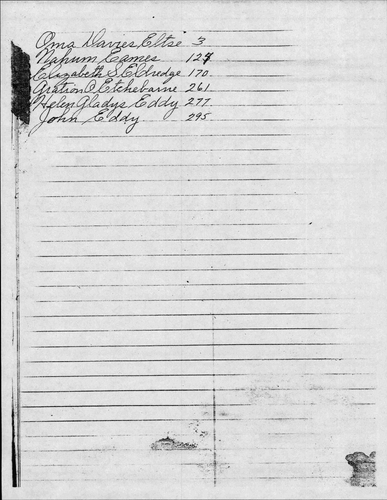 Oma Davies Eltse 3
Nahum Eames 127
Elizabeth S Eldredge 170
Gration O Etchebarne 261
Helen Gladys Eddy 277
John Eddy 295